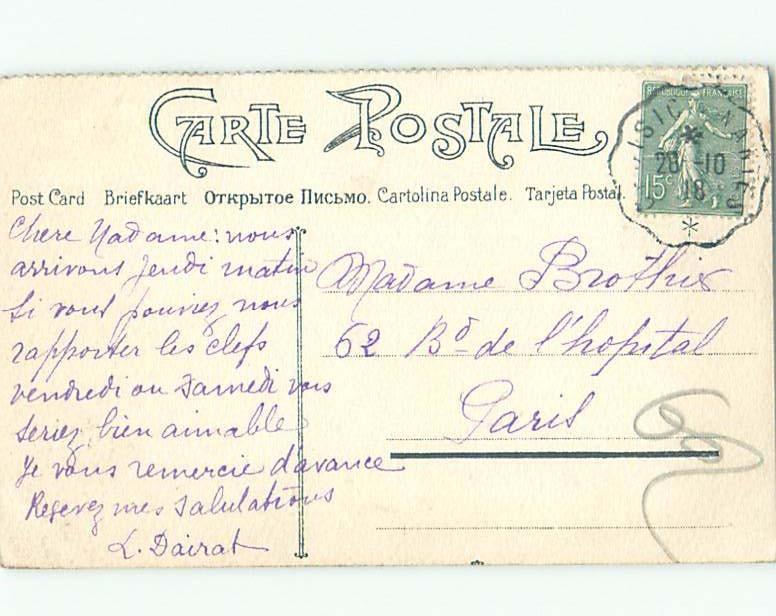 CARTE POSTALE
Post Card Briefkaart Открытое Письмо. Cartolina Postale. Tarjeta Postal.
REPUBLIQUE FRANÇAISE
15c
20 -10
18
Chere Madame: nous
arrivons jeudi matin
Si vous pouviez nous
rapporter les clefs
vendredi ou Samedi vous
seriez bien aimable
Je vous remercie d'avance
Recevez mes salulations
L. Dairat
Madame Brothier
62 Bd de l'hopital
Paris